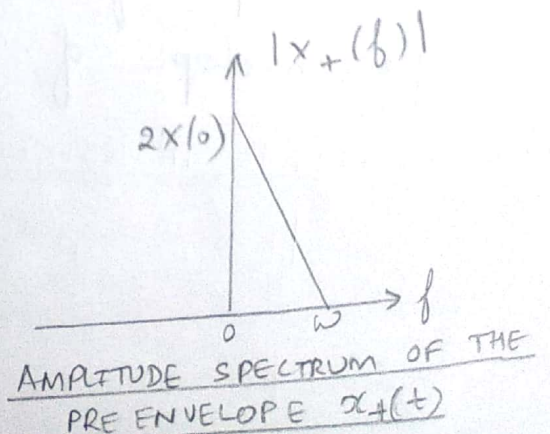 |X₊(f)|
2X(0)
f
0 W
AMPLITUDE SPECTRUM OF THE
PRE ENVELOPE x₊(t)